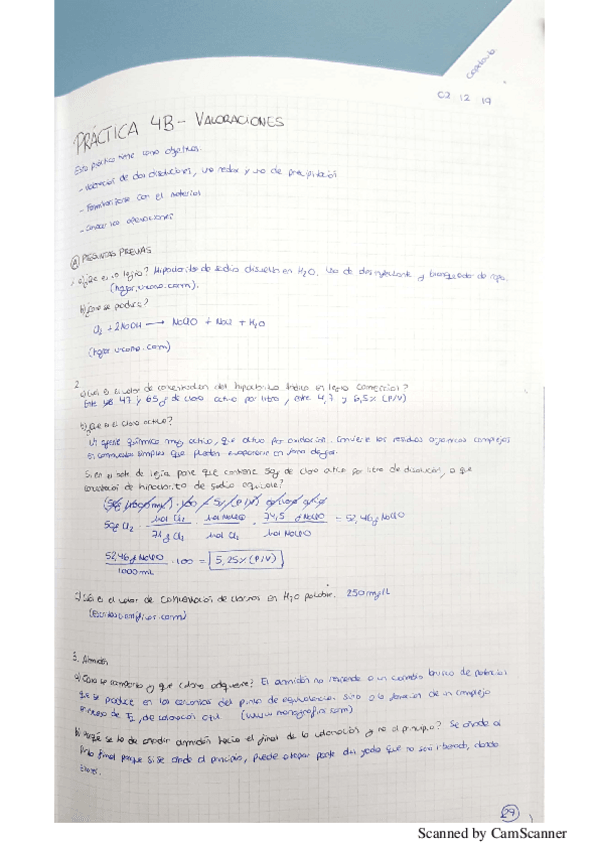 02 12 19
PRÁCTICA 4B - VALORACIONES
Esta práctica tiene como objetivos:
- Valoración de dos disoluciones, una redox y una de precipitación
- Familiarizarse con el material
- Conocer las operaciones
PREGUNTAS PREVIAS
a) ¿Qué es la lejía? Hipoclorito de sodio disuelto en H2O. Uso de desinfectante y blanqueador de ropa.
b) ¿Cómo se produce?
Cl2 + 2NaOH → NaClO + NaCl + H2O
2.
a) ¿Cuál es el valor de concentración del hipoclorito sódico en lejía comercial?
Entre 47 y 65 g de cloro activo por litro, entre 4,7 y 6,5% (P/V)
b) ¿Qué es el cloro activo?
químico muy activo, que actúa por oxidación. Convierte los residuos orgánicos complejos
en compuestos simples que pueden evaporarse en forma de gas.
Si en el bote de lejía pone que contiene 50g de cloro activo por litro de disolución, a que
concentración de hipoclorito de sodio equivale?
50g Cl2 · 1mol Cl2 / 71g Cl2 · 1mol NaClO / 1mol Cl2 · 74,5 g NaClO / 1mol NaClO = 52,46g NaClO
52,46g NaClO / 1000 mL · 100 = 5,25% (P/V)
c) ¿Cuál es el valor de concentración de cloruros en H2O potable? 250 mg/L
3. Almidón
a) ¿Cómo se comporta y que color adquiere? El almidón no responde a un cambio brusco de potencial
que se produce en las cercanías del punto de equivalencia sino a la formación de un complejo
exceso de I2, de coloración azul (www.monografias.com)
b) ¿Porqué se ha de añadir almidón hacia el final de la valoración y no al principio? Se añade al
final porque si se añade al principio, puede atrapar parte del yodo que no será liberado, dando
errores.
29
Scanned by CamScanner